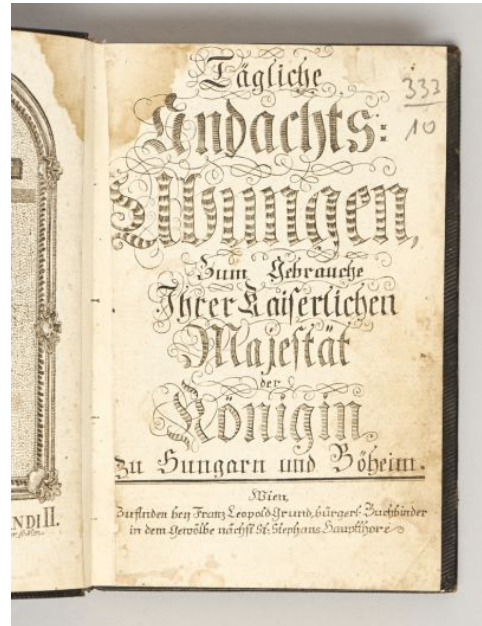 NDI II.
Tägliche
333
10
Andachts:
Ubungen,
Zum Gebrauche
Ihrer Kaiserlichen
Majestät
der
Königin
zu Hungarn und Böheim.
Wien,
Zufinden bey Franz Leopold Grund, bürgerl: Buchbinder
in dem Gewölbe nächst St: Stephans Hauptthore